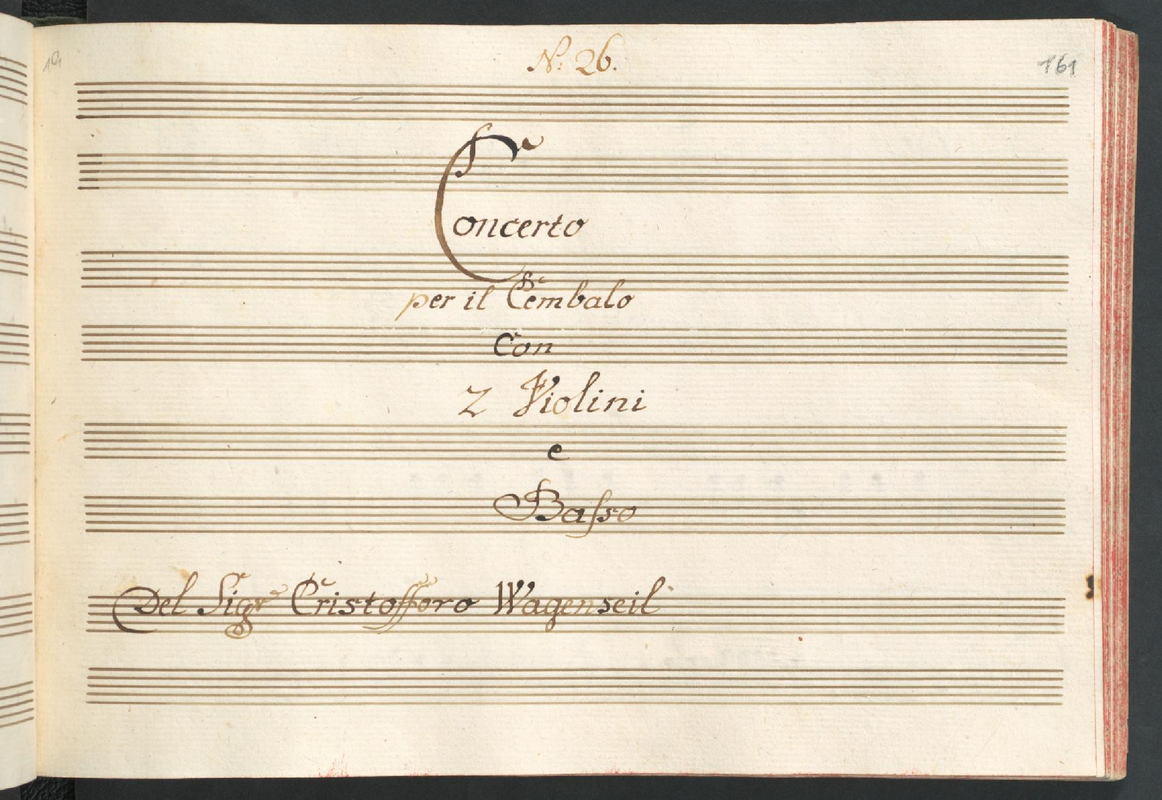 No: 26.
161
Concerto
per il Cembalo
Con
2 Violini
e
Basso
Del Sigr Cristofforo Wagenseil